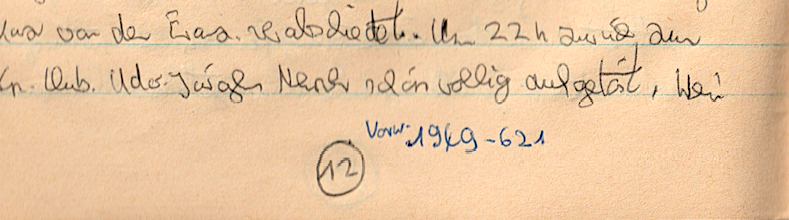 von der Eras. verabschiedet. Um 22h zurück zum
Club. Udo-Jürgen schon völlig aufgetöst, Wein
Vorw. 1949-621
12